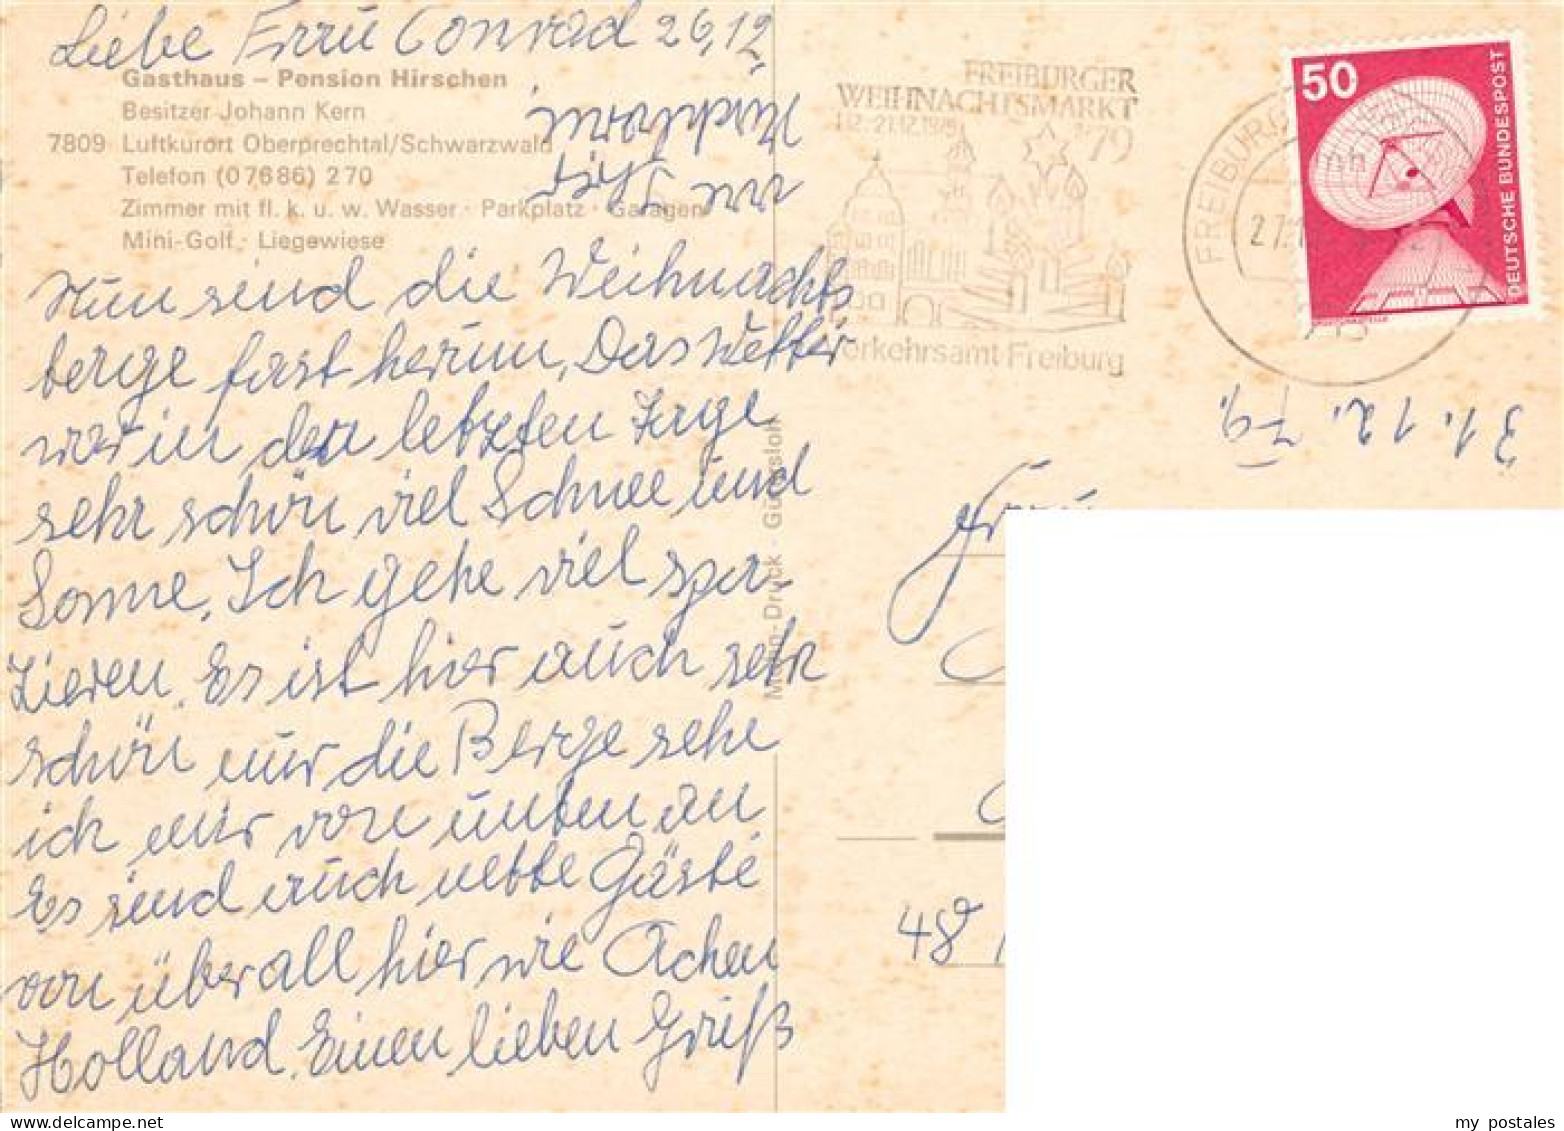 Liebe Frau Conrad 26,12
Gasthaus – Pension Hirschen
Besitzer Johann Kern
7809 Luftkurort Oberprechtal/Schwarzwald
Telefon (07686) 270
Zimmer mit fl. k. u. w. Wasser · Parkplatz · Garagen
Mini-Golf · Liegewiese
Nun sind die Weihnachts
berge fast herum, Das Wetter
war in den letzten Tage
sehr schön viel Schnee und
Sonne, Ich gehe viel spa-
zieren. Es ist hier auch sehr
schön nur die Berge sehe
ich mir von unten an
Es sind auch nette Gäste
von überall hier wie Achen
Holland. Einen lieben Gruß
FREIBURGER
WEIHNACHTSMARKT
'79
Verkehrsamt Freiburg
FREIBURG
50
DEUTSCHE BUNDESPOST
31.12.79.
Frau
48
my postales